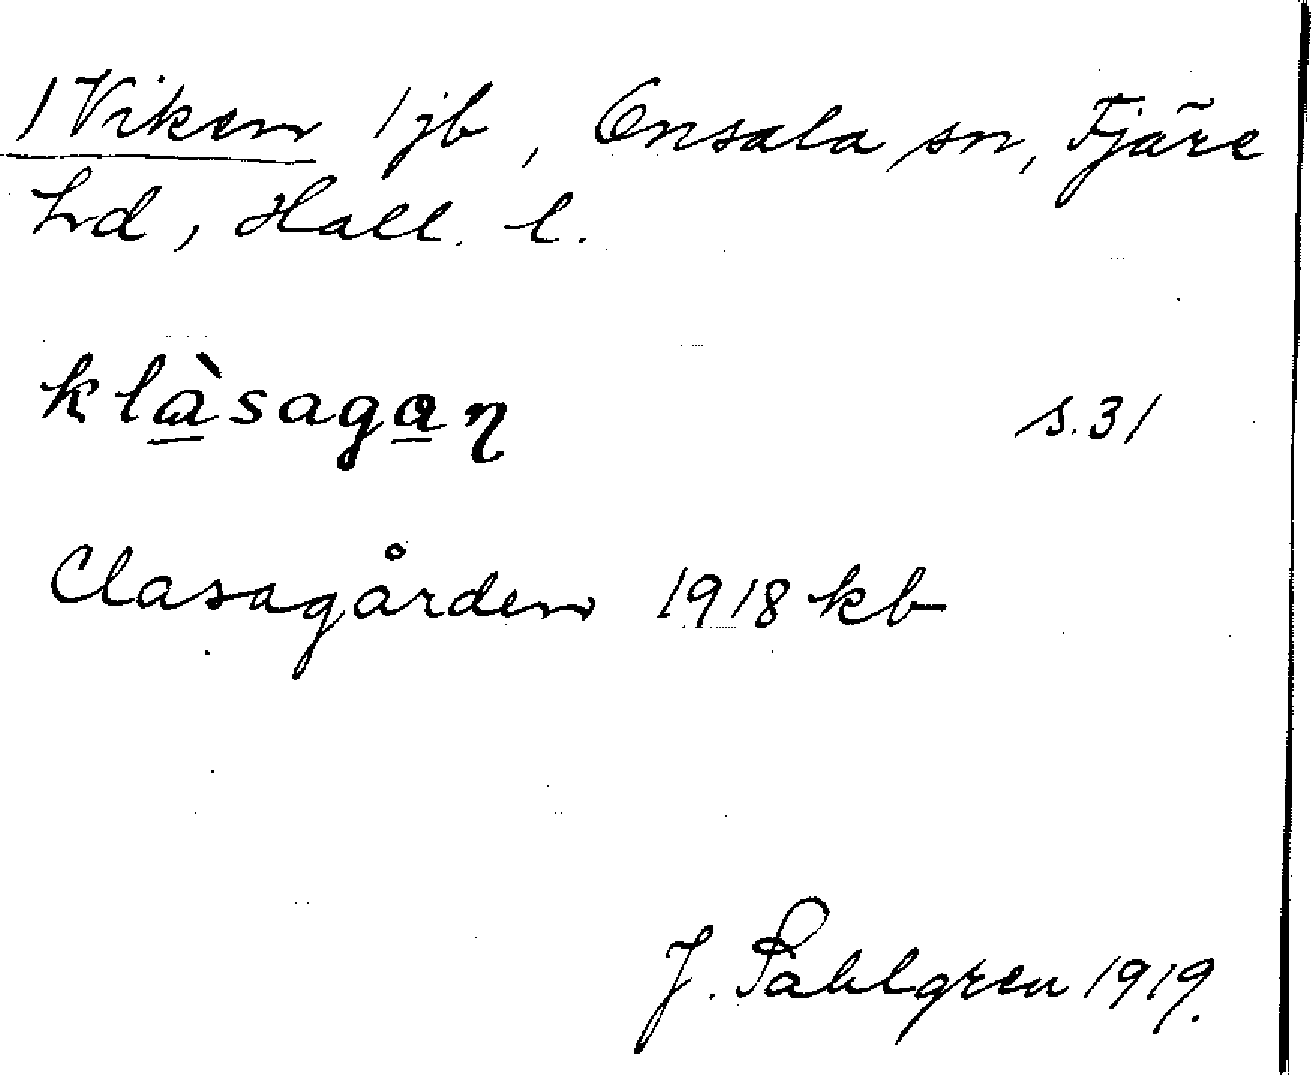 / Viken 1 jb, Onsala sn, Fjäre
hd, Hall. l.
klàsagaη s. 31
Clasagården 1918 kb
J. Sahlgren 1919.